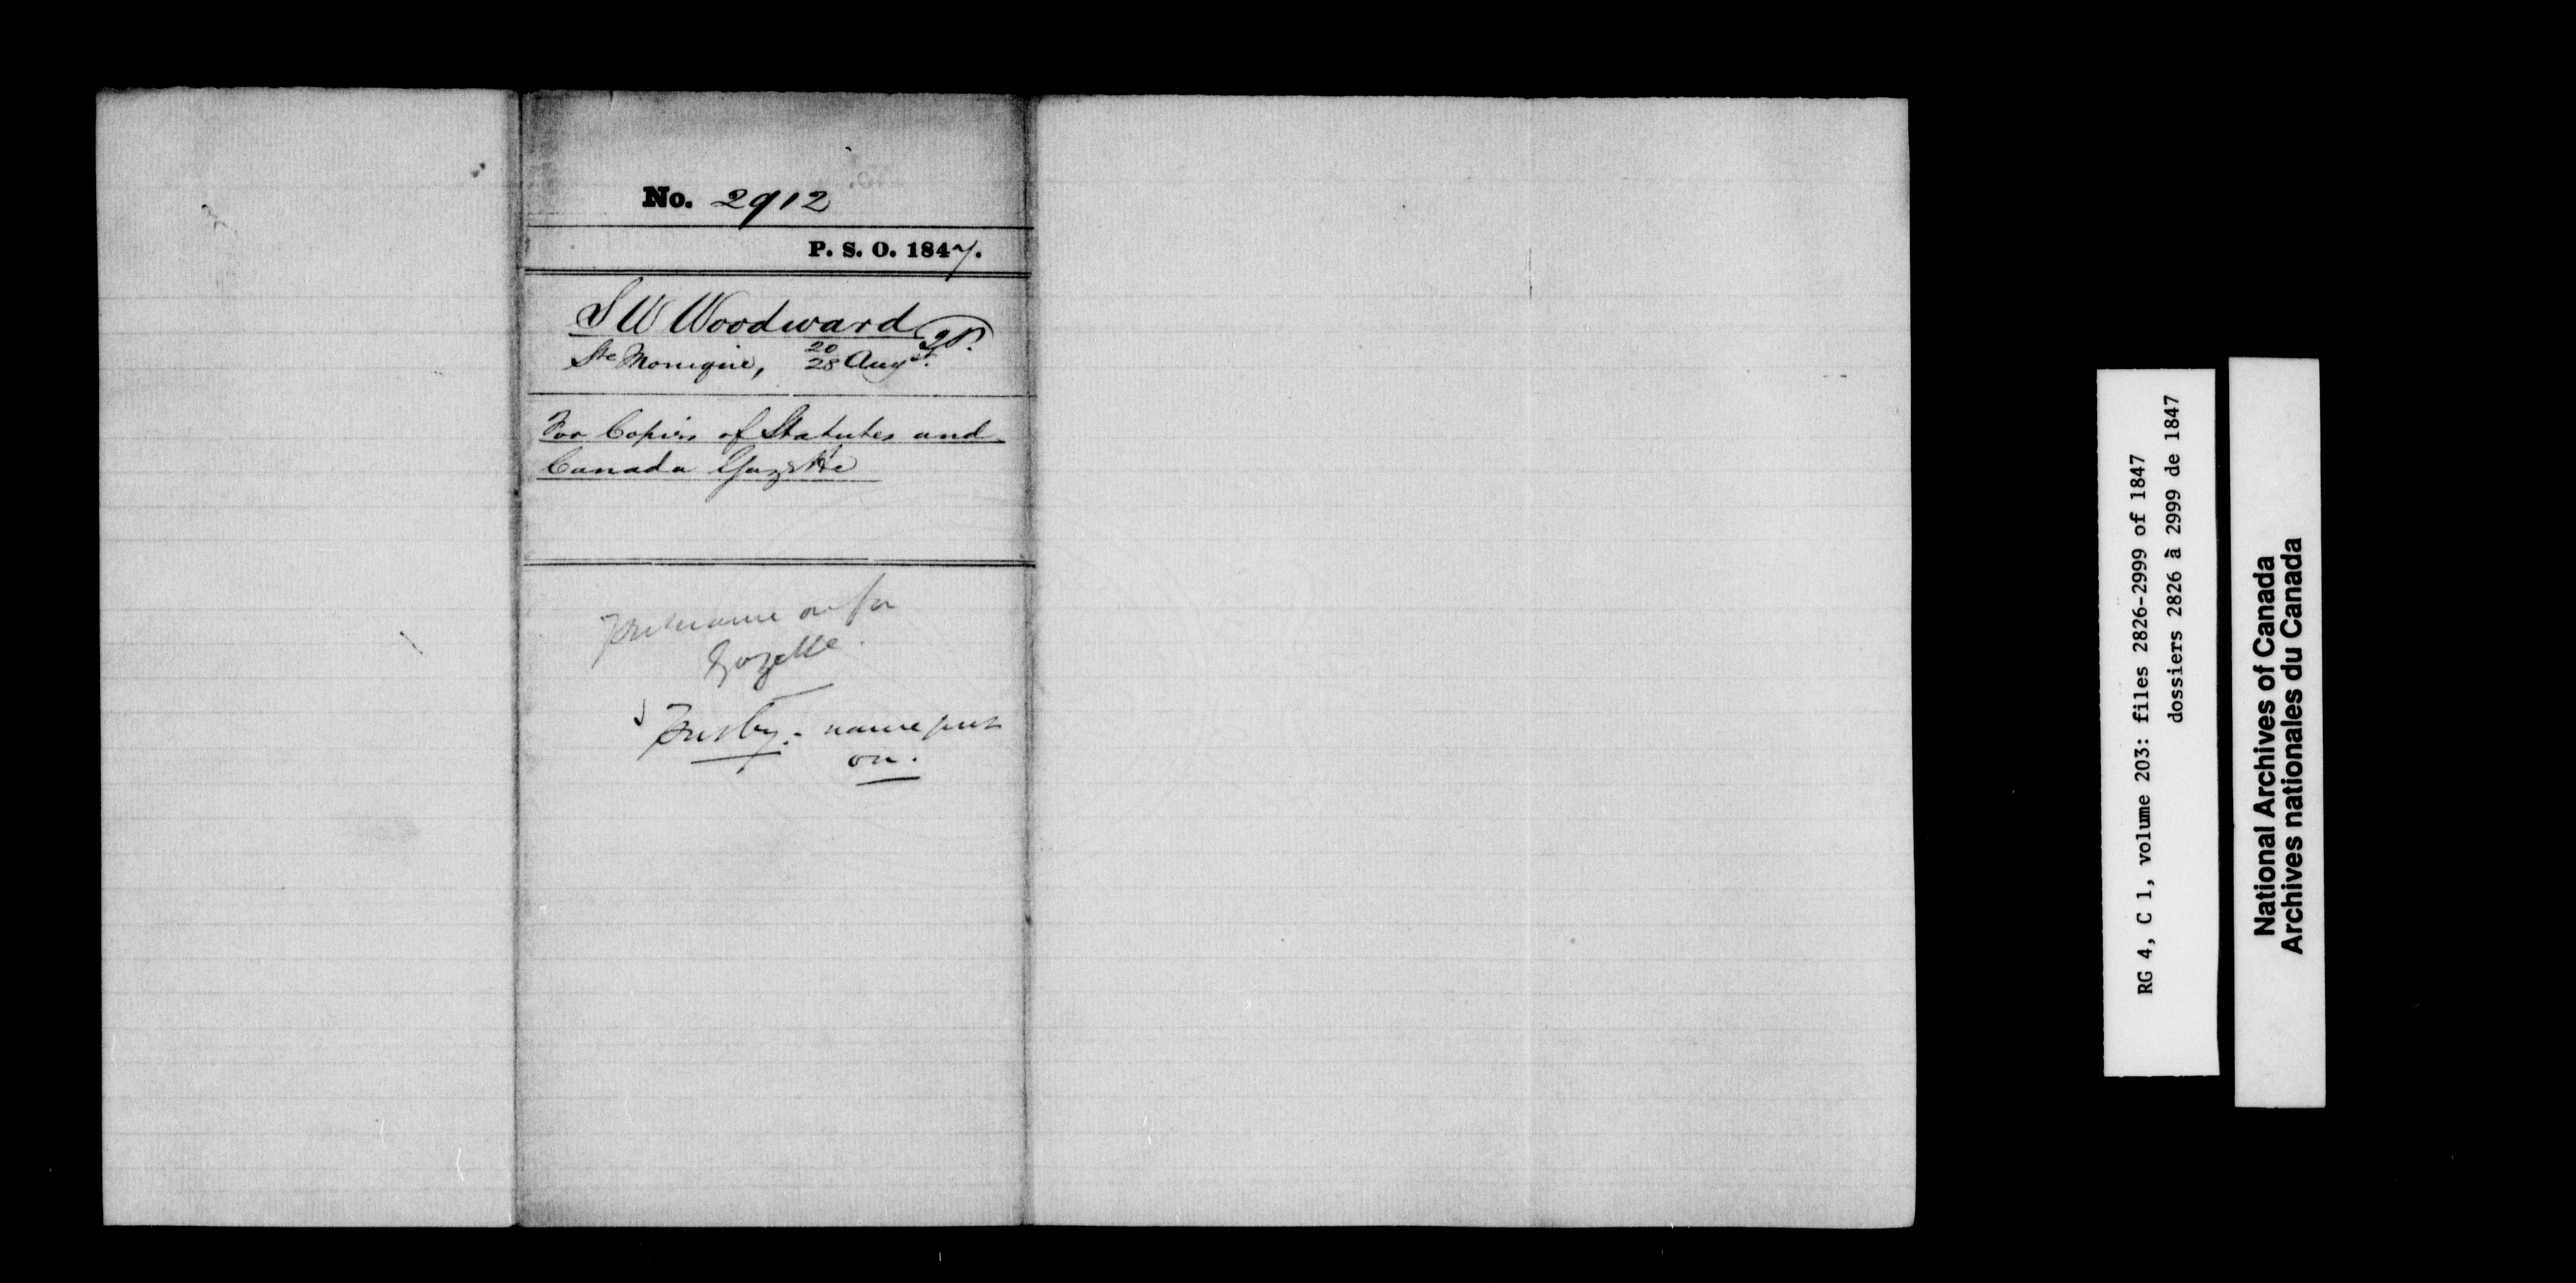 No. 2912
P. S. O. 1847.
S W Woodward J.P.
Ste Monique, 20/28 Augst.
For Copies of Statutes and
Canada Gazette
Put name on for
Gazette.
name put
on.
RG 4, C 1, volume 203: files 2826-2999 of 1847
dossiers 2826 à 2999 de 1847
National Archives of Canada
Archives nationales du Canada